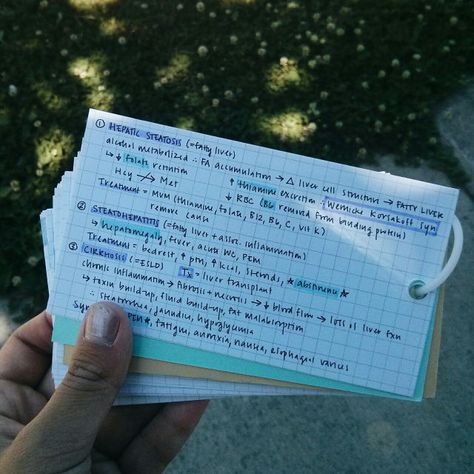 ① HEPATIC STEATOSIS (= fatty liver)
alcohol metabolized ∴ FA accumulation → Δ liver cell structure → FATTY LIVER
↳ ↓ folate retention ↑ thiamine excretion (Wernicke Korsakoff Syn
Hcy → Met ↓ RBC (B6 removed from binding protein)
Treatment = MVM (thiamine, folate, B12, B6, C, vit K)
remove cause
② STEATOHEPATITIS (= fatty liver + assoc. inflammation)
↳ hepatomegaly, fever, acute WL, PEM
Treatment = bedrest, ↑ pro, ↑ kcal, steroids, * abstinence *
③ CIRRHOSIS (= ESLD) Tx = liver transplant
chronic inflammation → fibrosis + necrosis → ↓ blood flow → loss of liver fxn
↳ toxin build-up, fluid build-up, fat malabsorption
∴ steatorrhea, jaundice, hypoglycemia
PEM*, fatigue, anorexia, nausea, esophageal varices